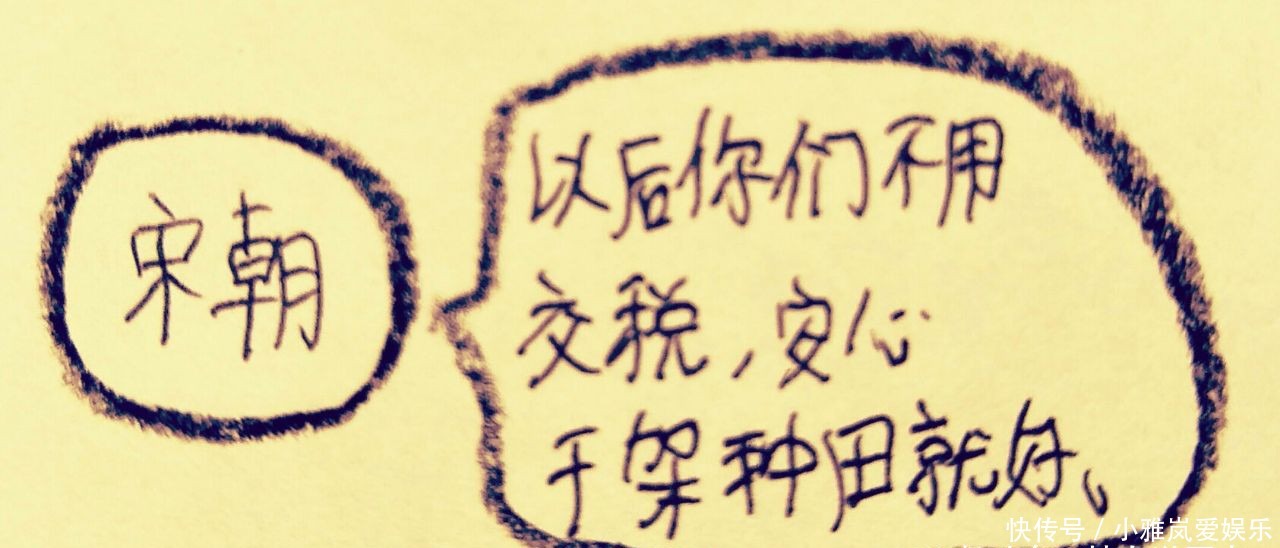 宋朝
以后你们不用
交税,安心
干架种田就好、
快传号/小雅岚爱娱乐